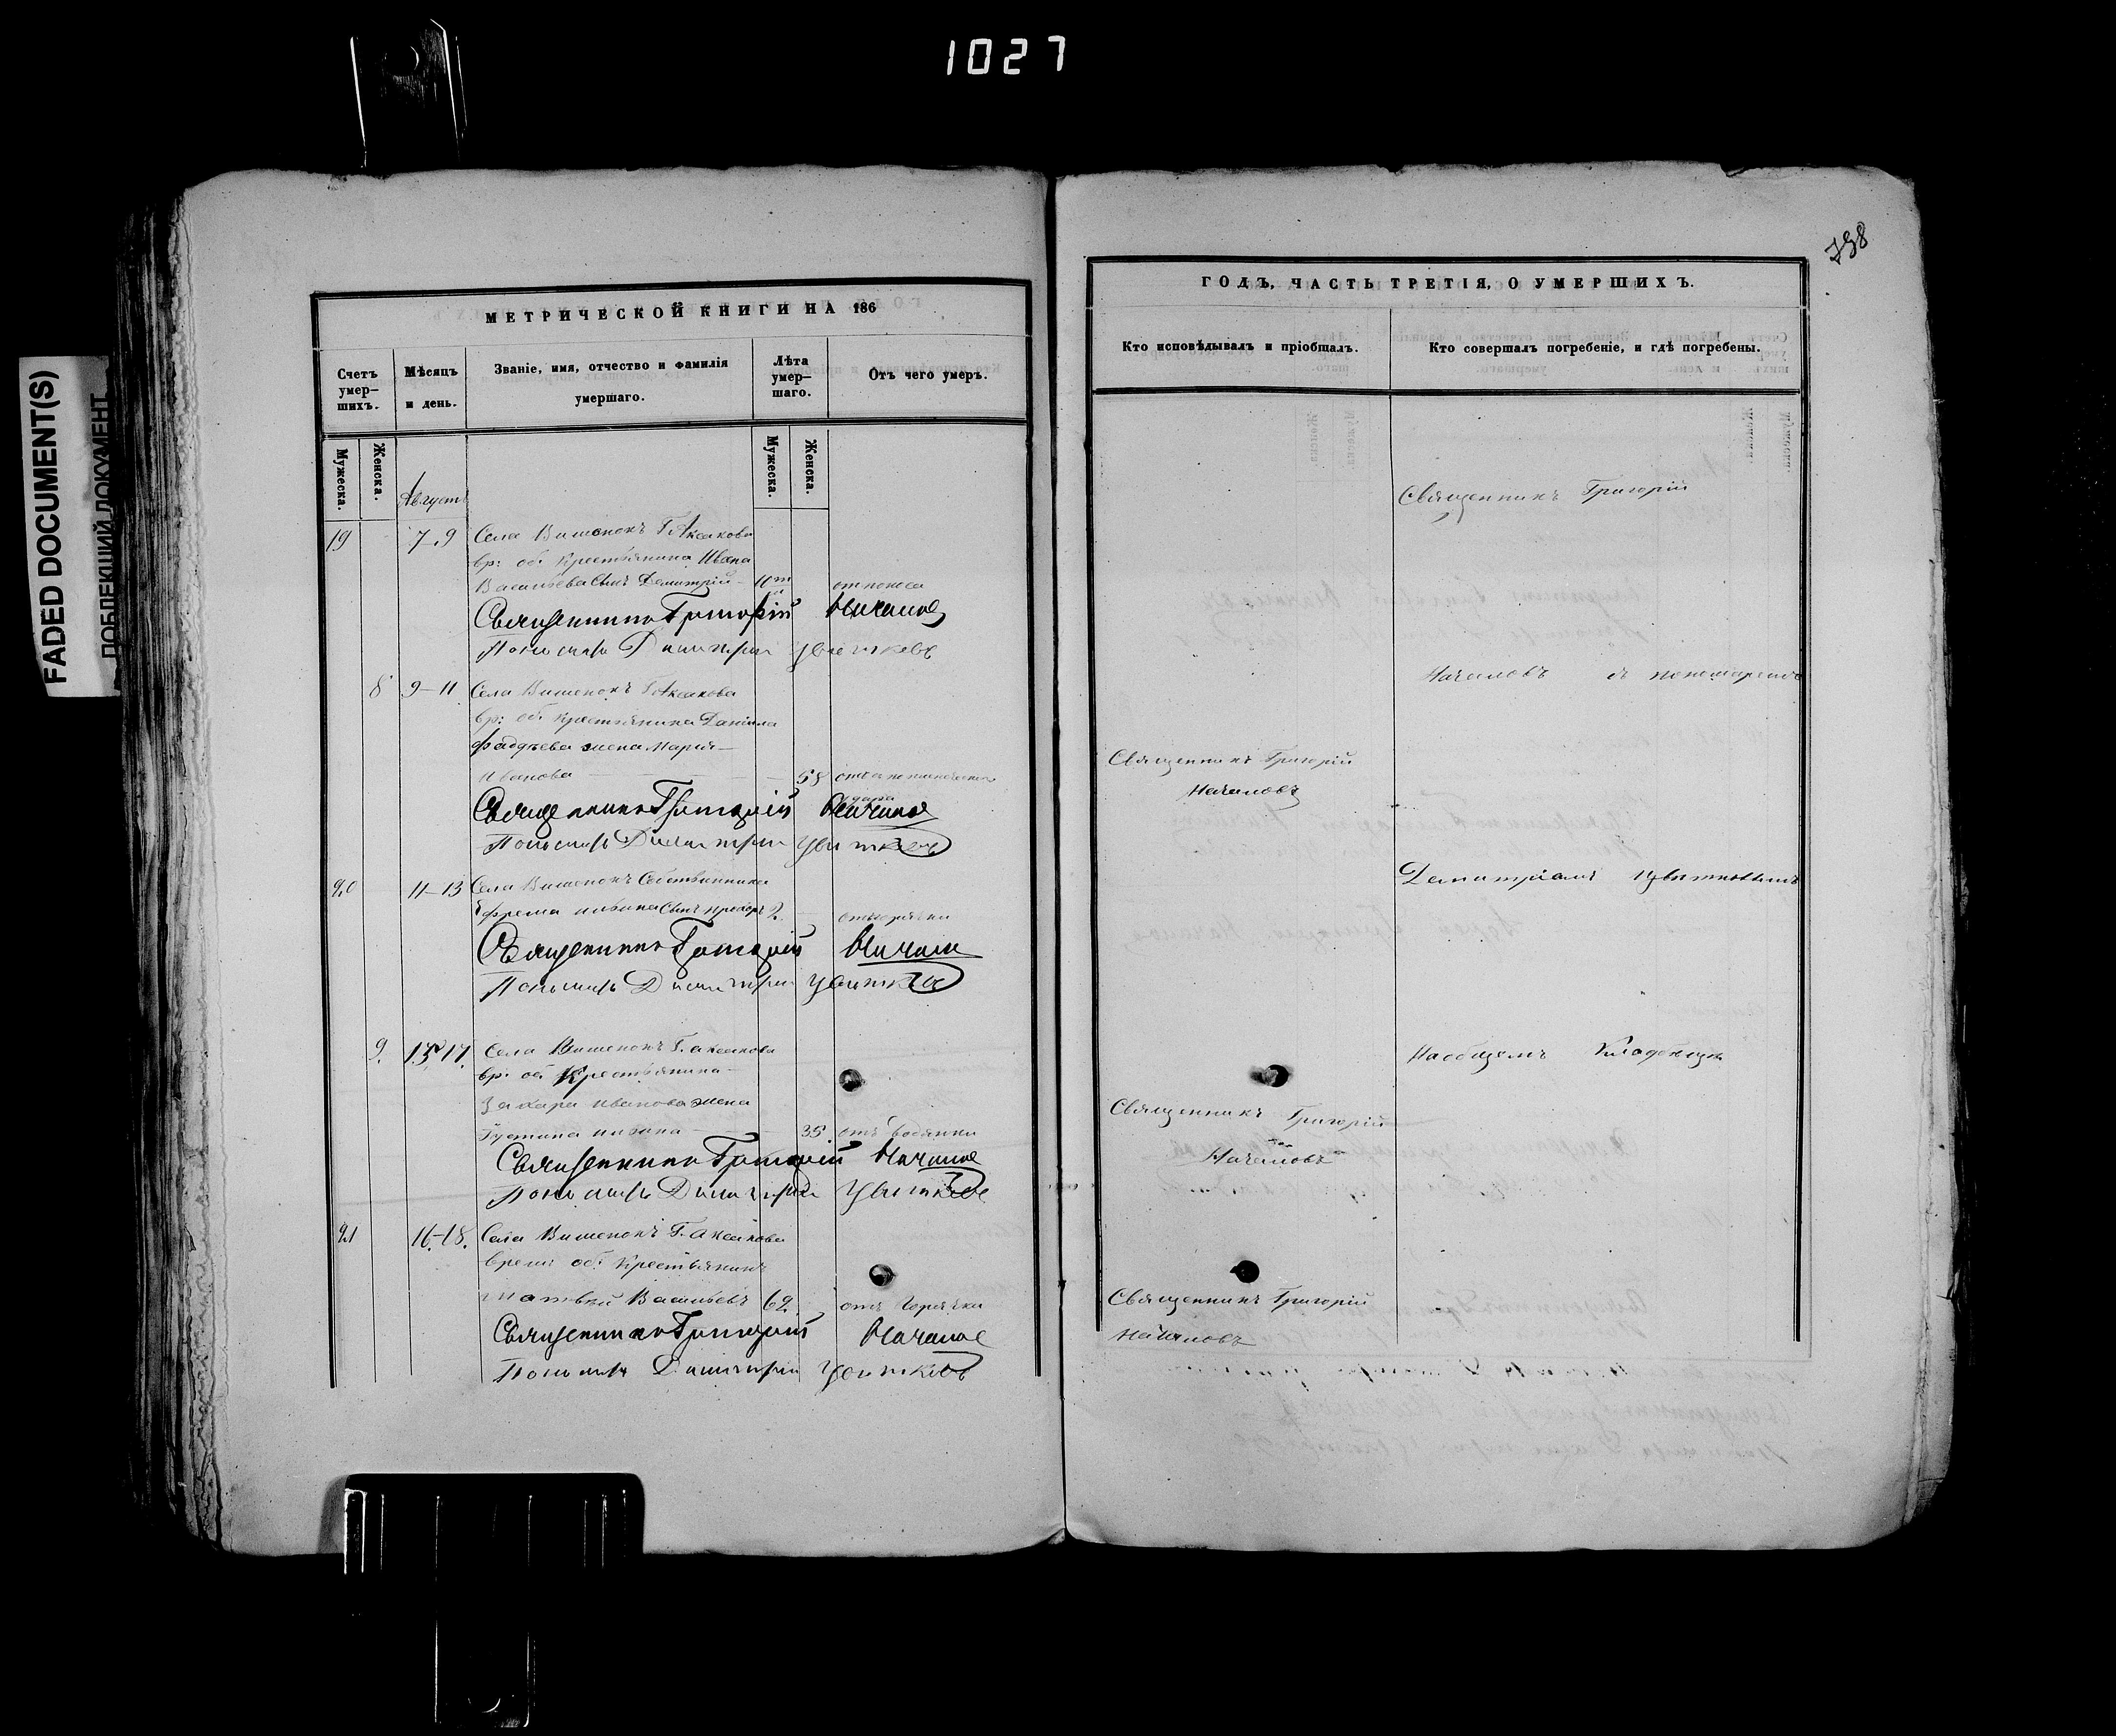 1027
FADED DOCUMENT(S)
ПОБЛЕКШИЙ ДОКУМЕНТ
МЕТРИЧЕСКОЙ КНИГИ НА 186
Счетъ умер–шихъ.
Мѣсяцъ и день.
Званіе, имя, отчество и фамилія умершаго.
Лѣта умер–шаго.
Отъ чего умеръ.
Мужеска.
Женска.
Мужеска.
Женска.
Августъ
19 7–9 Села Вишенокъ Г. Аксакова
вр: об. Крестьянина Ивана
Васильева Сынъ Димитрій отъ поноса
Священникъ Григорій Началовъ
Пономарь Димитрій Цвѣтковъ
8 9–11 Села Вишенокъ Г. Аксакова
вр: об. крестьянина Даніила
Фаддѣева жена Марія
Иванова 58
удара
Священникъ Григорій Началовъ
Пономарь Димитрій Цвѣтковъ
20 11–13 Села Вишенокъ Собственника
сынъ 2. отъ горячки
Священникъ Григорій Началовъ
Пономарь Димитрій Цвѣтковъ
9. 17. Села Вишенокъ Г. Аксакова
вр: об. Крестьянина
Захара Иванова жена
35. отъ водянки
Священникъ Григорій Началовъ
Пономарь Димитрій Цвѣтковъ
21 16–18. Села Вишенокъ Г. Аксакова
врем: об: Крестьянинъ
Матвѣй Васильевъ 62. отъ Горячки
Священникъ Григорій Началовъ
Пономарь Димитрій Цвѣтковъ
ГОДЪ, ЧАСТЬ ТРЕТІЯ, О УМЕРШИХЪ.
Кто исповѣдывалъ и пріобщалъ.
Кто совершалъ погребеніе, и гдѣ погребены.
Священникъ Григорій
Началовъ съ пономаремъ
Священникъ Григорій
Началовъ
Димитріемъ Цвѣтковымъ
На общемъ Кладбищѣ
Священникъ Григорій
Началовъ
Священникъ Григорій
Началовъ